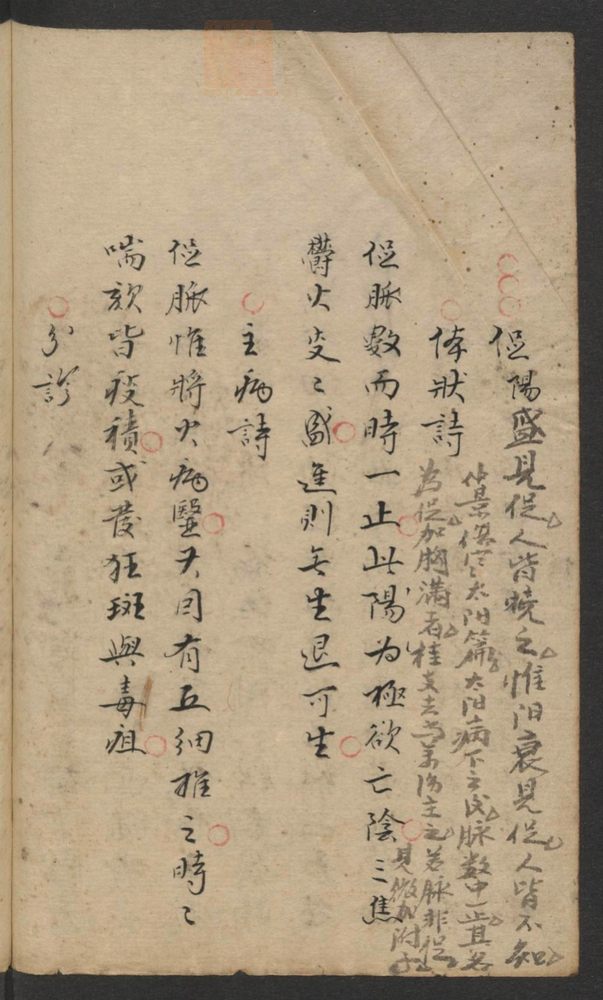 促陽盛見促人皆曉之惟阳衰見促人皆不知
傷寒太阳篇太阳病下之後脉数中一止其名
為促加胸满者桂支去芍薬湯主之若脉非促
見微加附子
体狀詩
促脉數而時一止此陽为極欲亡陰三焦
欝火炎〻盛進則无生退可生
主病詩
促脉惟將火病醫其因有五細推之時〻
喘咳皆痰積或發狂斑與毒疽
分診